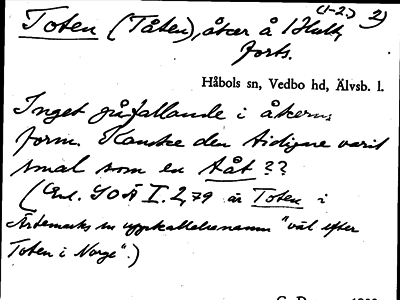 (1-2.) 2)
Toten (Tåten), åker å 1 Hult,
forts.
Håbols sn, Vedbo hd, Älvsb. l.
Inget påfallande i åkerns
form. Kanske den tidigare varit
smal som en tåt??
(Enl. SOÄ I.2,79 är Toten i
Ärtemarks sn uppkallelsenamn "väl efter
Toten i Norge".)